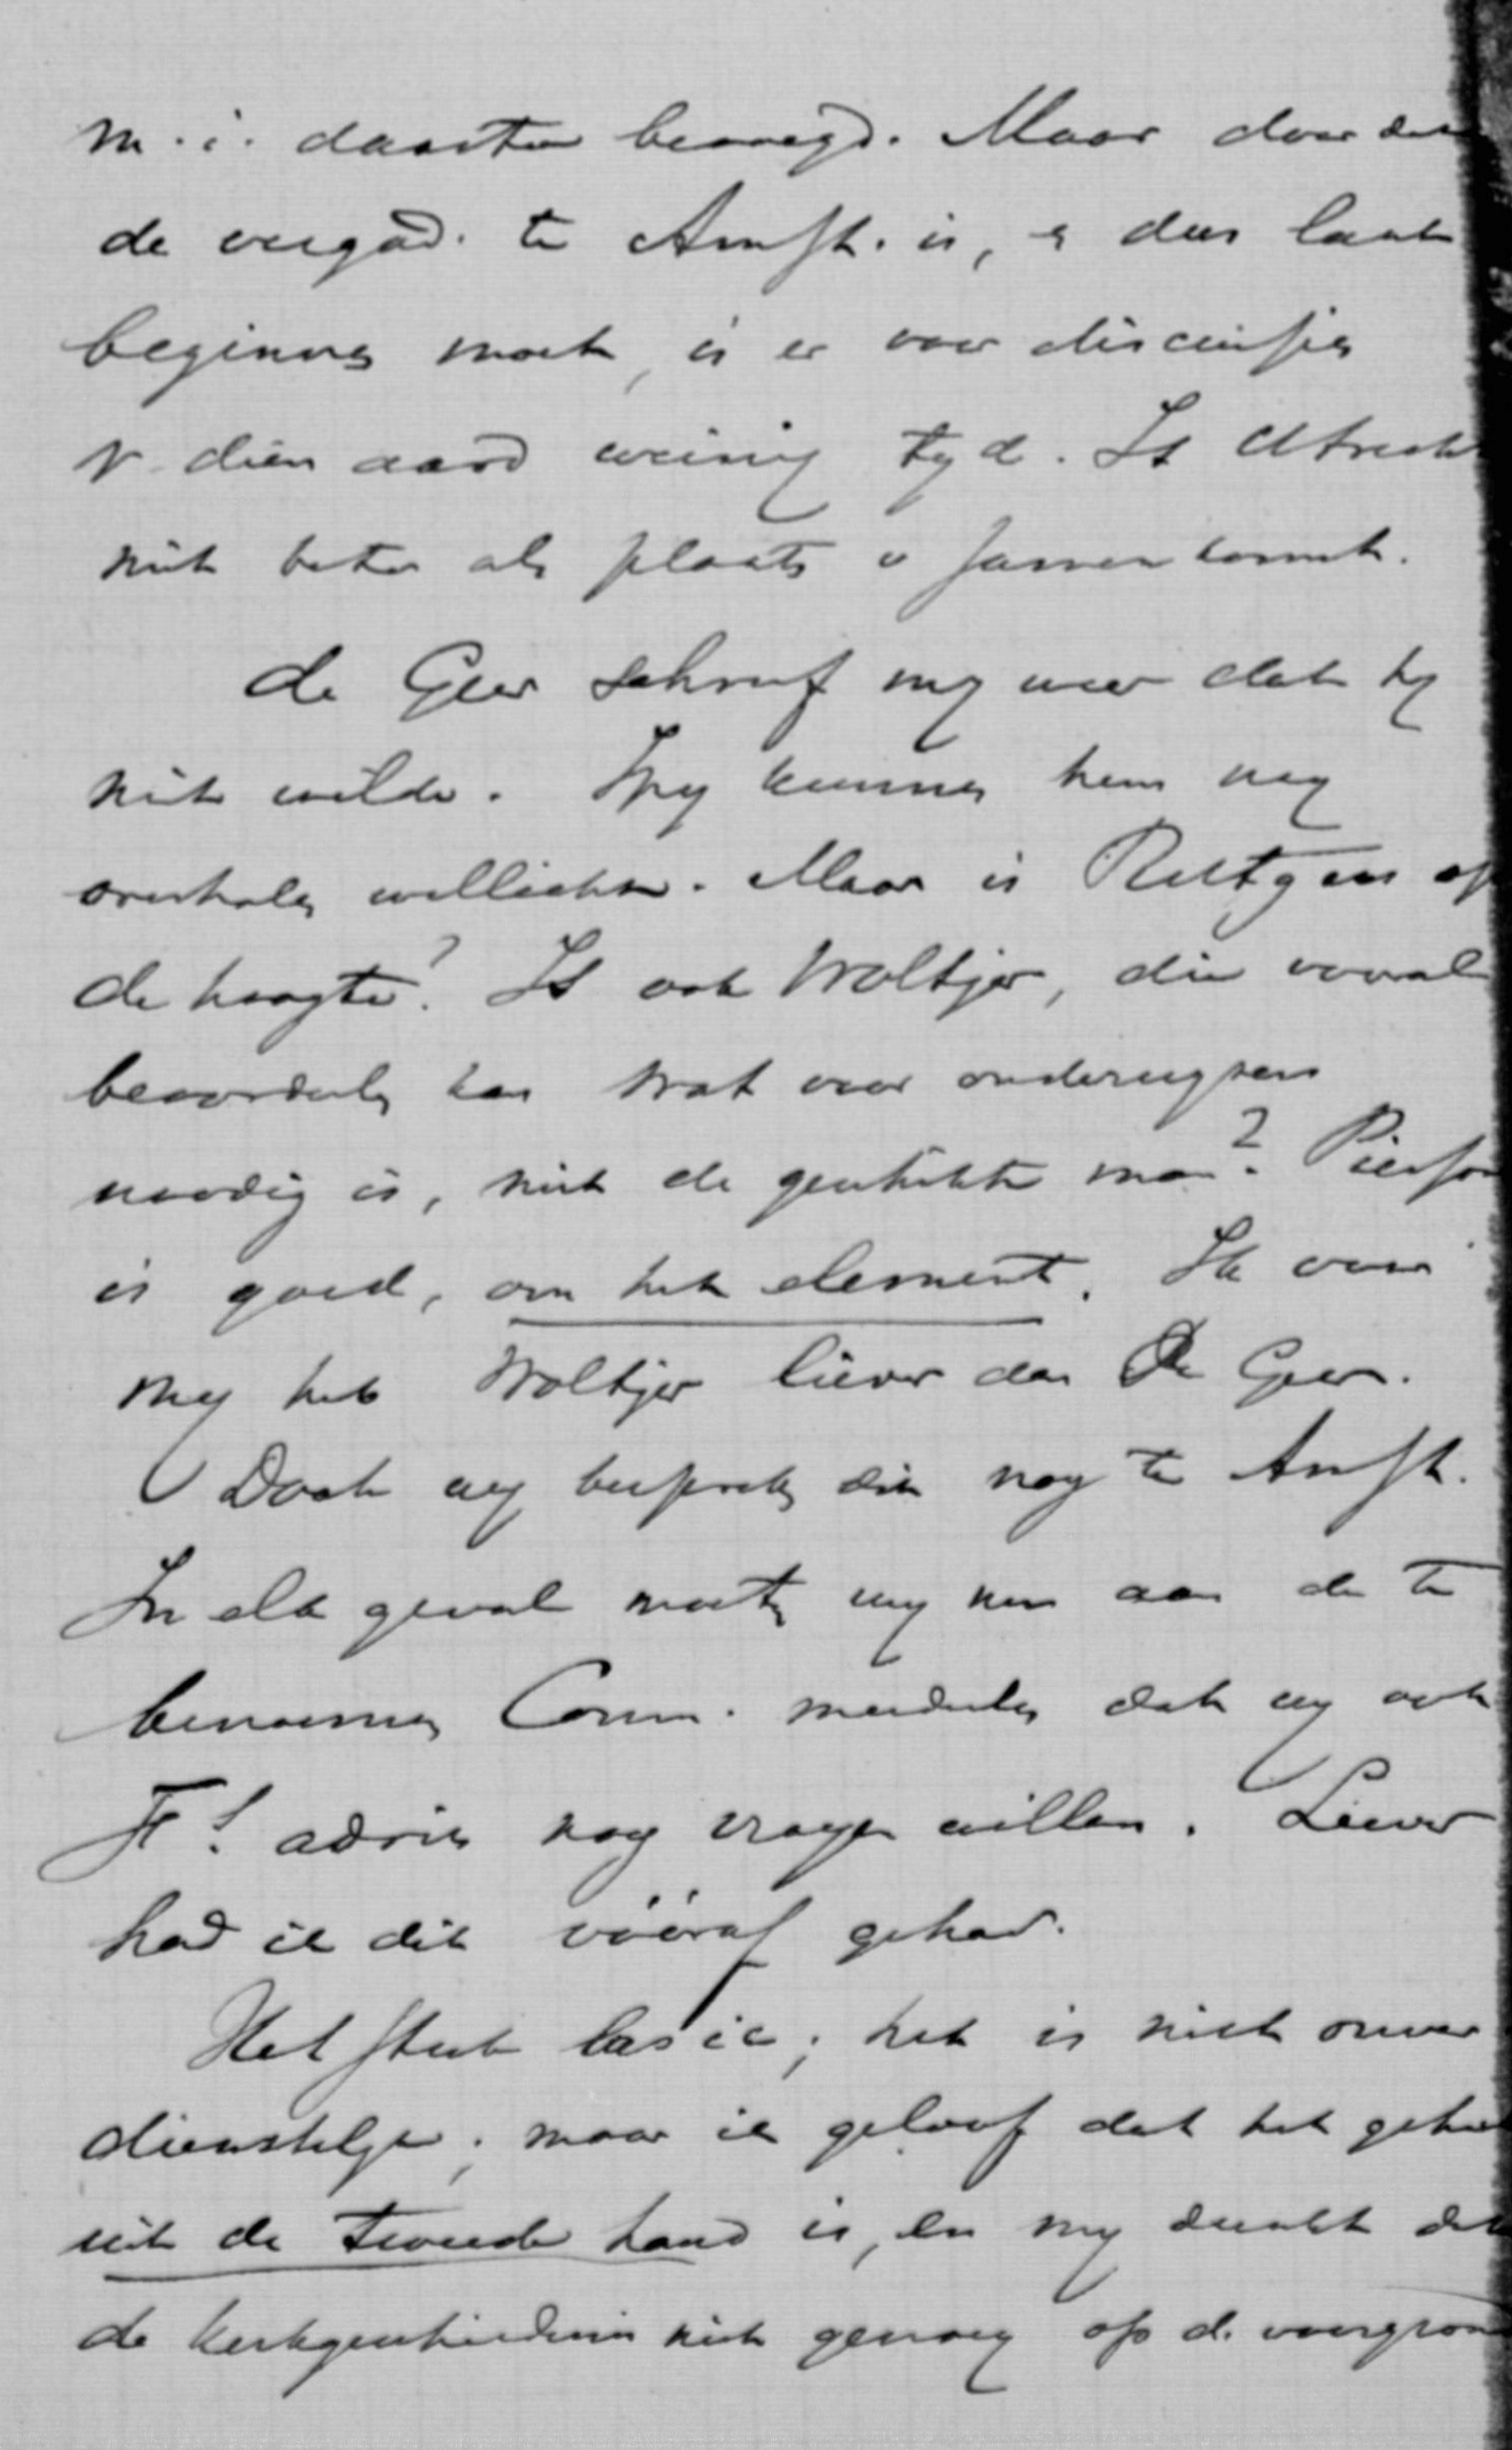 m.i. daartoe bevoegd. Maar door dat
de vergad. te Amst. is, & dus laat
beginnen moet, is er voor discussies
v. dien aard weinig tyd. Is Utrecht
niet beter als plaats v samenkomst.
de Geer schreef my weer dat hy
niet wilde. Wy kunnen hem nog
overhalen wellicht. Maar is Rutgers op
de hoogte? Is ook Woltjer, die vooral
beoordeelen kan wat voor onderwyzers
noodig is, niet de geschikte man? Pierson
is goed, om het element. Ik voor
my heb Woltjer liever dan De Geer.
Doch wy bespreken dit nog te Amst.
In elk geval moeten wy nu aan de te
benoemen Comm. mededeelen dat wy ook
F.'s advies nog vragen willen. Liever
had ik dit vóóraf gehad.
Het stuk las ik; het is niet onver
dienstelyk; maar ik geloof dat het geheel
uit de tweede hand is, en my dunkt dat
de kerkgeschiedenis niet genoeg op d. voorgrond